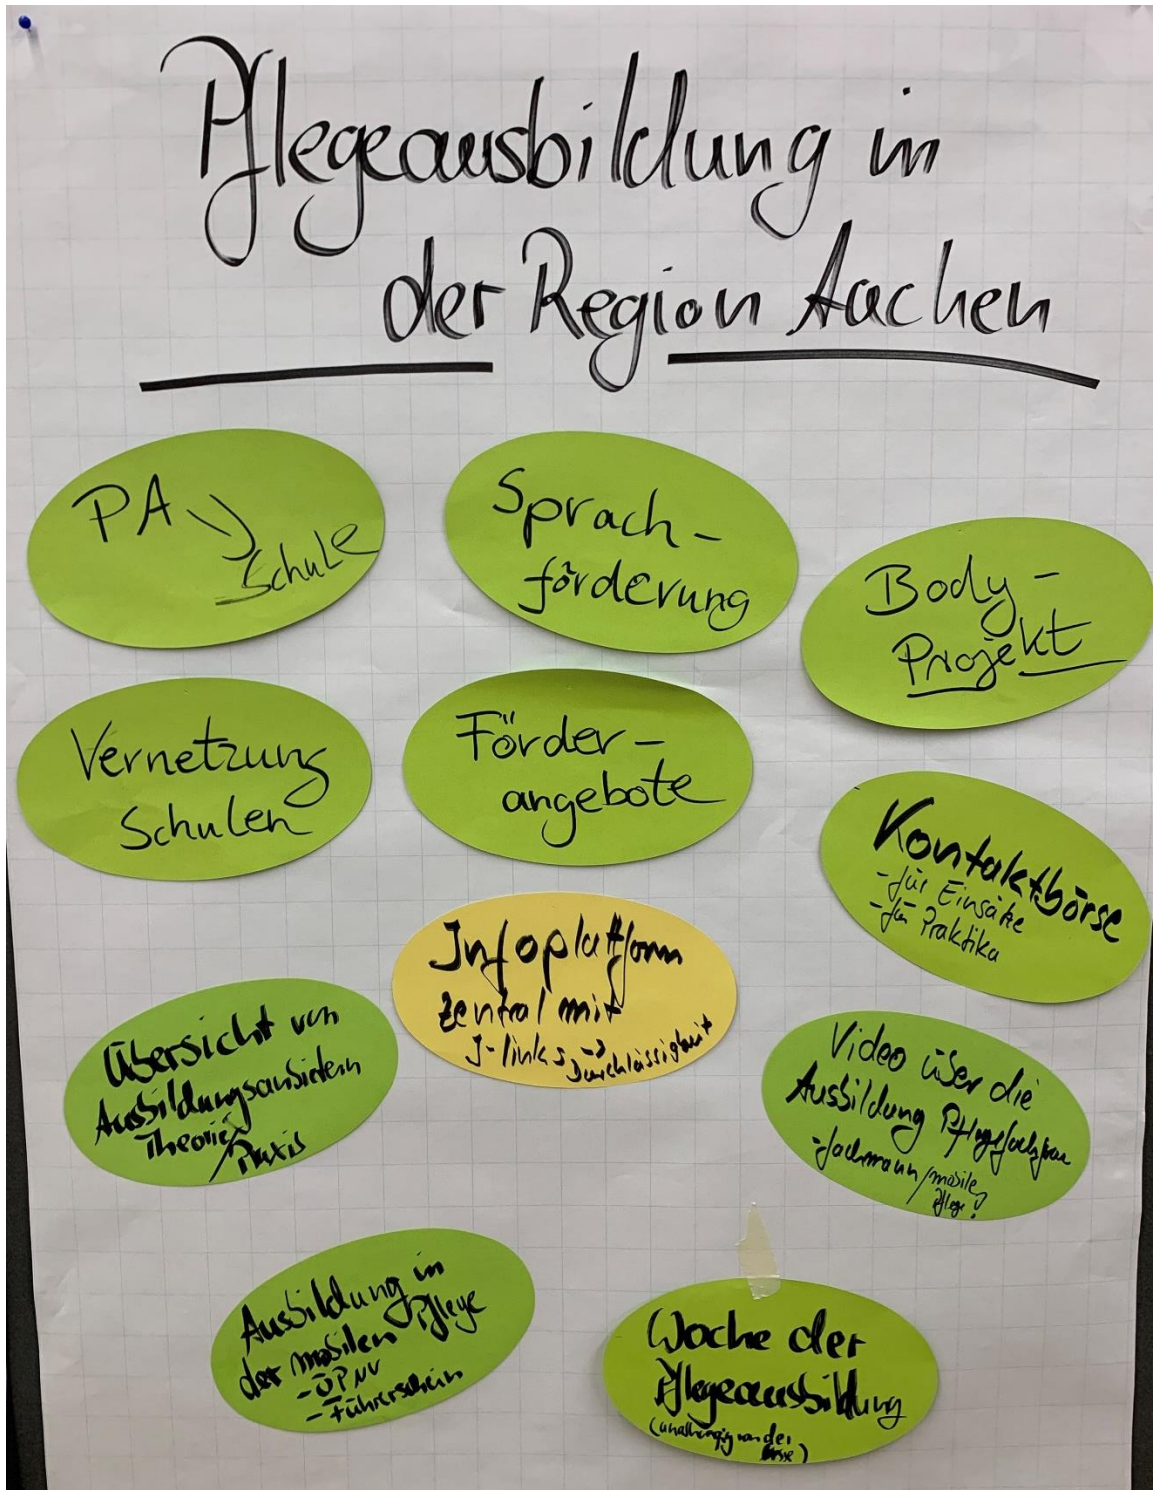 Pflegeausbildung in
der Region Aachen
PA ↘
Schule
Sprach-
förderung
Body-
Projekt
Vernetzung
Schulen
Förder-
angebote
Kontaktbörse
- für Einsätze
- für Praktika
Infoplattform
zentral mit
J-links → Durchlässigkeit
Übersicht von
Ausbildungsanbietern
Theorie/
Praxis
Video über die
Ausbildung Pflegefachfrau
-fachmann/mobile
Pflege!
Ausbildung in
der mobilen Pflege
- ÖPNV
- Führerschein
Woche der
Pflegeausbildung
(unabhängig von der
)